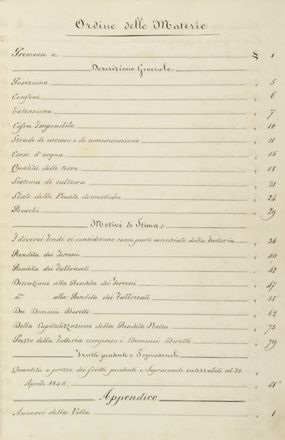 Ordine delle Materie
Premessa a § 1
Descrizione Generale
Posizione " 5
Confini " 6
Estensione " 7
Cifra Imponibile " 10
Strade di accesso e di comunicazione " 11
Corsi d'acqua " 15
Qualità delle terre " 18
Sistema di cultura " 21
Stato delle Piante domestiche " 24
Boschi " 29
Motivi di Stima
I diversi fondi si considerano come parti componenti della Fattoria " 38
Rendita dei Terreni " 40
Rendita dei Fabbricati " 42
Detrazione alla Rendita dei Terreni " 47
d.° alla Rendita dei Fabbricati " 51
Dei Domini Diretti " 62
Della Capitalizzazione della Rendita Netta " 73
Prezzo della Fattoria compreso i Domini Diretti " 79
Frutti pendenti e Soprasuolo
Quantità e prezzo dei frutti pendenti e soprasuolo al
Aprile 1846 " 81
Appendice
Annessi della Villa " 1